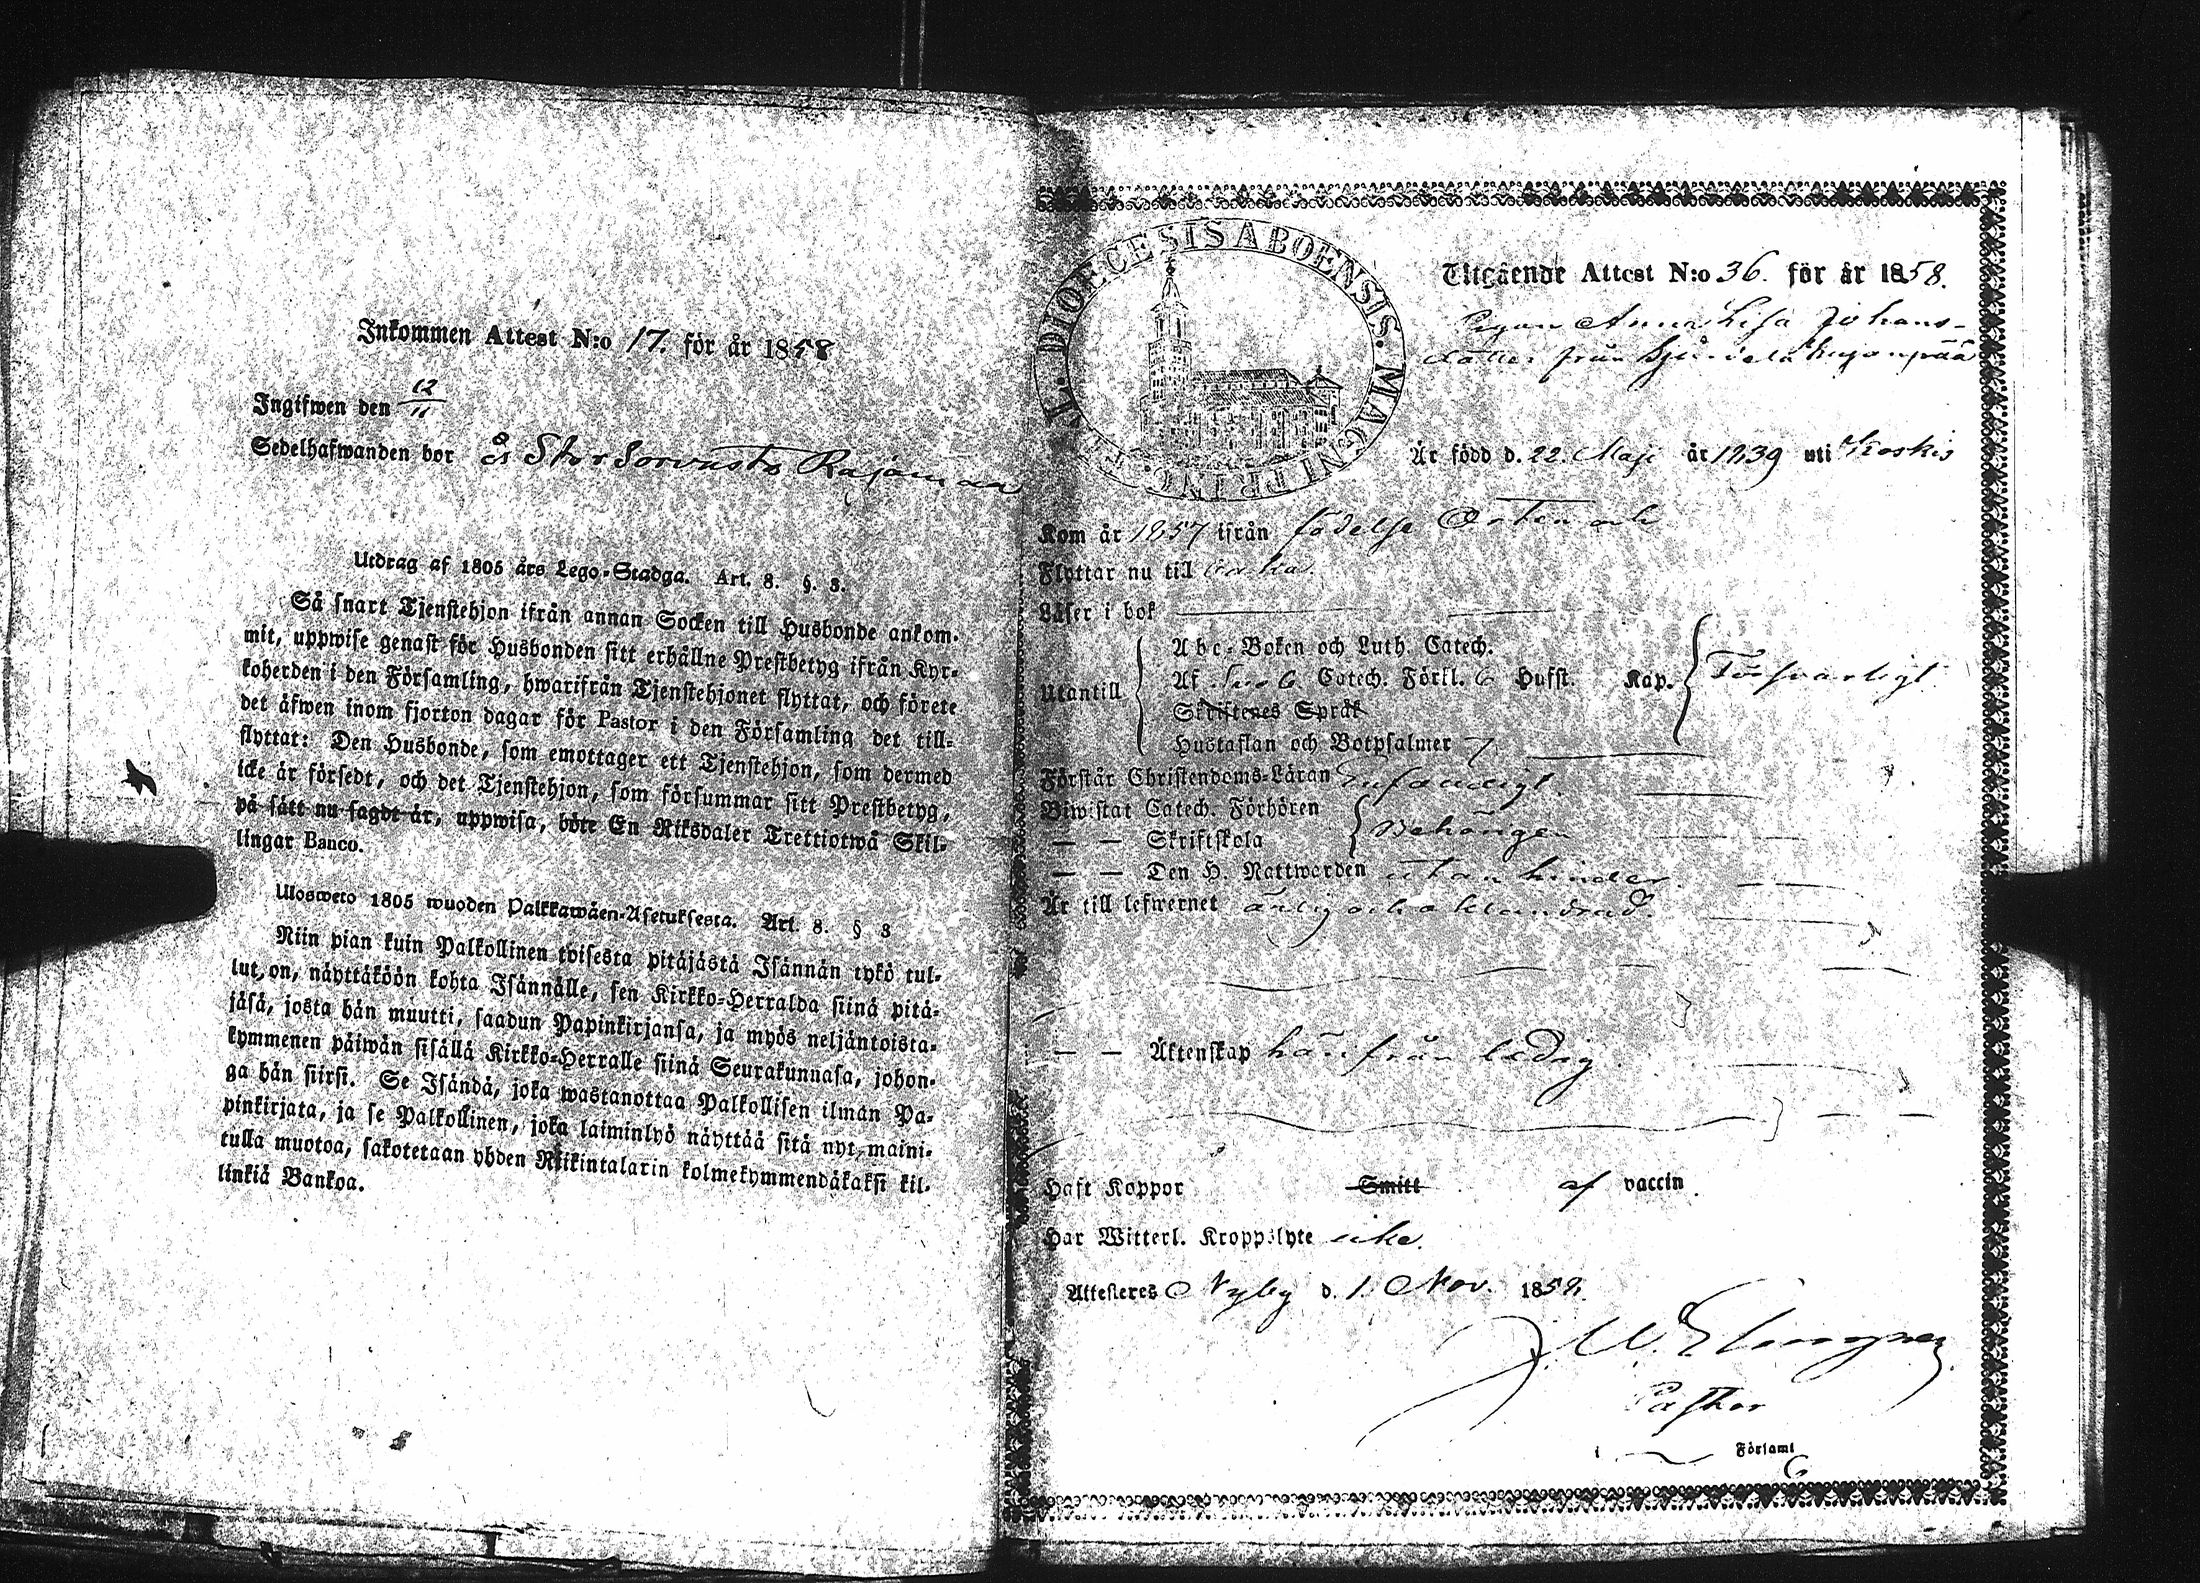 Inkommen Attest N:o 17. för år 1858
Ingifwen den 12/11
Sedelhafwanden bor å Storsorvasto Rajamaa
Utdrag af 1805 års Lego-Stadga. Art. 8. §. 3.
Så snart Tjenstehjon ifrån annan Socken till Husbonde ankom-
mit, uppwise genast för Husbonden sitt erhållne Prestbetyg ifrån Kyr-
koherden i den Församling, hwarifrån Tjenstehjonet flyttat, och förete
det äfwen inom fjorton dagar för Pastor i den Församling det till-
flyttat: Den Husbonde, som emottager ett Tjenstehjon, som dermed
icke är försedt, och det Tjenstehjon, som försummar sitt Prestbetyg,
på sätt nu sagdt är, uppwisa, böte En Riksdaler Trettiotwå Skil-
lingar Banco.
Ulosweto 1805 wuoden Palkkawäen-Asetuksesta. Art. 8. § 3
Niin pian kuin Palkollinen toisesta pitäjästä Isännän tykö tul-
lut on, näyttäköön kohta Isännälle, sen Kirkko-Herralda siinä pitä-
jäsä, josta hän muutti, saadun Papinkirjansa, ja myös neljäntoista-
kymmenen päiwän sisällä Kirkko-Herralle siinä Seurakunnasa, johon-
ga hän siirsi. Se Isändä, joka wastanottaa Palkollisen ilman Pa-
pinkirjata, ja se Palkollinen, joka laiminlyö näyttää sitä nyt maini-
tulla muotoa, sakotetaan yhden Riikintalarin kolmekymmendäkaksi kil-
linkiä Bankoa.
FEL. DIOECESIS ABOENSIS. MAGNI PRINC.
Utgående Attest N:o 36. för år 1858.
Pigan Anna Lisa Johans-
dotter från
Är född d. 22. Maji år 1839 uti Koskis
Kom år 1857 ifrån födelse Orten och
Flyttar nu till
Läser i bok
Utantill
Abc-Boken och Luth. Catech.
Af Sveb. Catech. Förkl. 6 Hufst. Kap. Försvarligt
Skriftenes Språk
Hustaflan och Botpsalmer 7
Förstår Christendoms-Läran Enfaldigt.
Biwistat Catech. Förhören
— — Skriftskola
Behörigen
— — Den H. Nattwarden utan hinder.
Är till lefwernet ärlig och oklandrad.
— — Äktenskap härifrån ledig.
Haft Koppor Smitt af vaccin.
Har Witterl. Kroppslyte icke.
Attesteres Nyby d. 1. Nov. 1858.
Pastor
i Församl